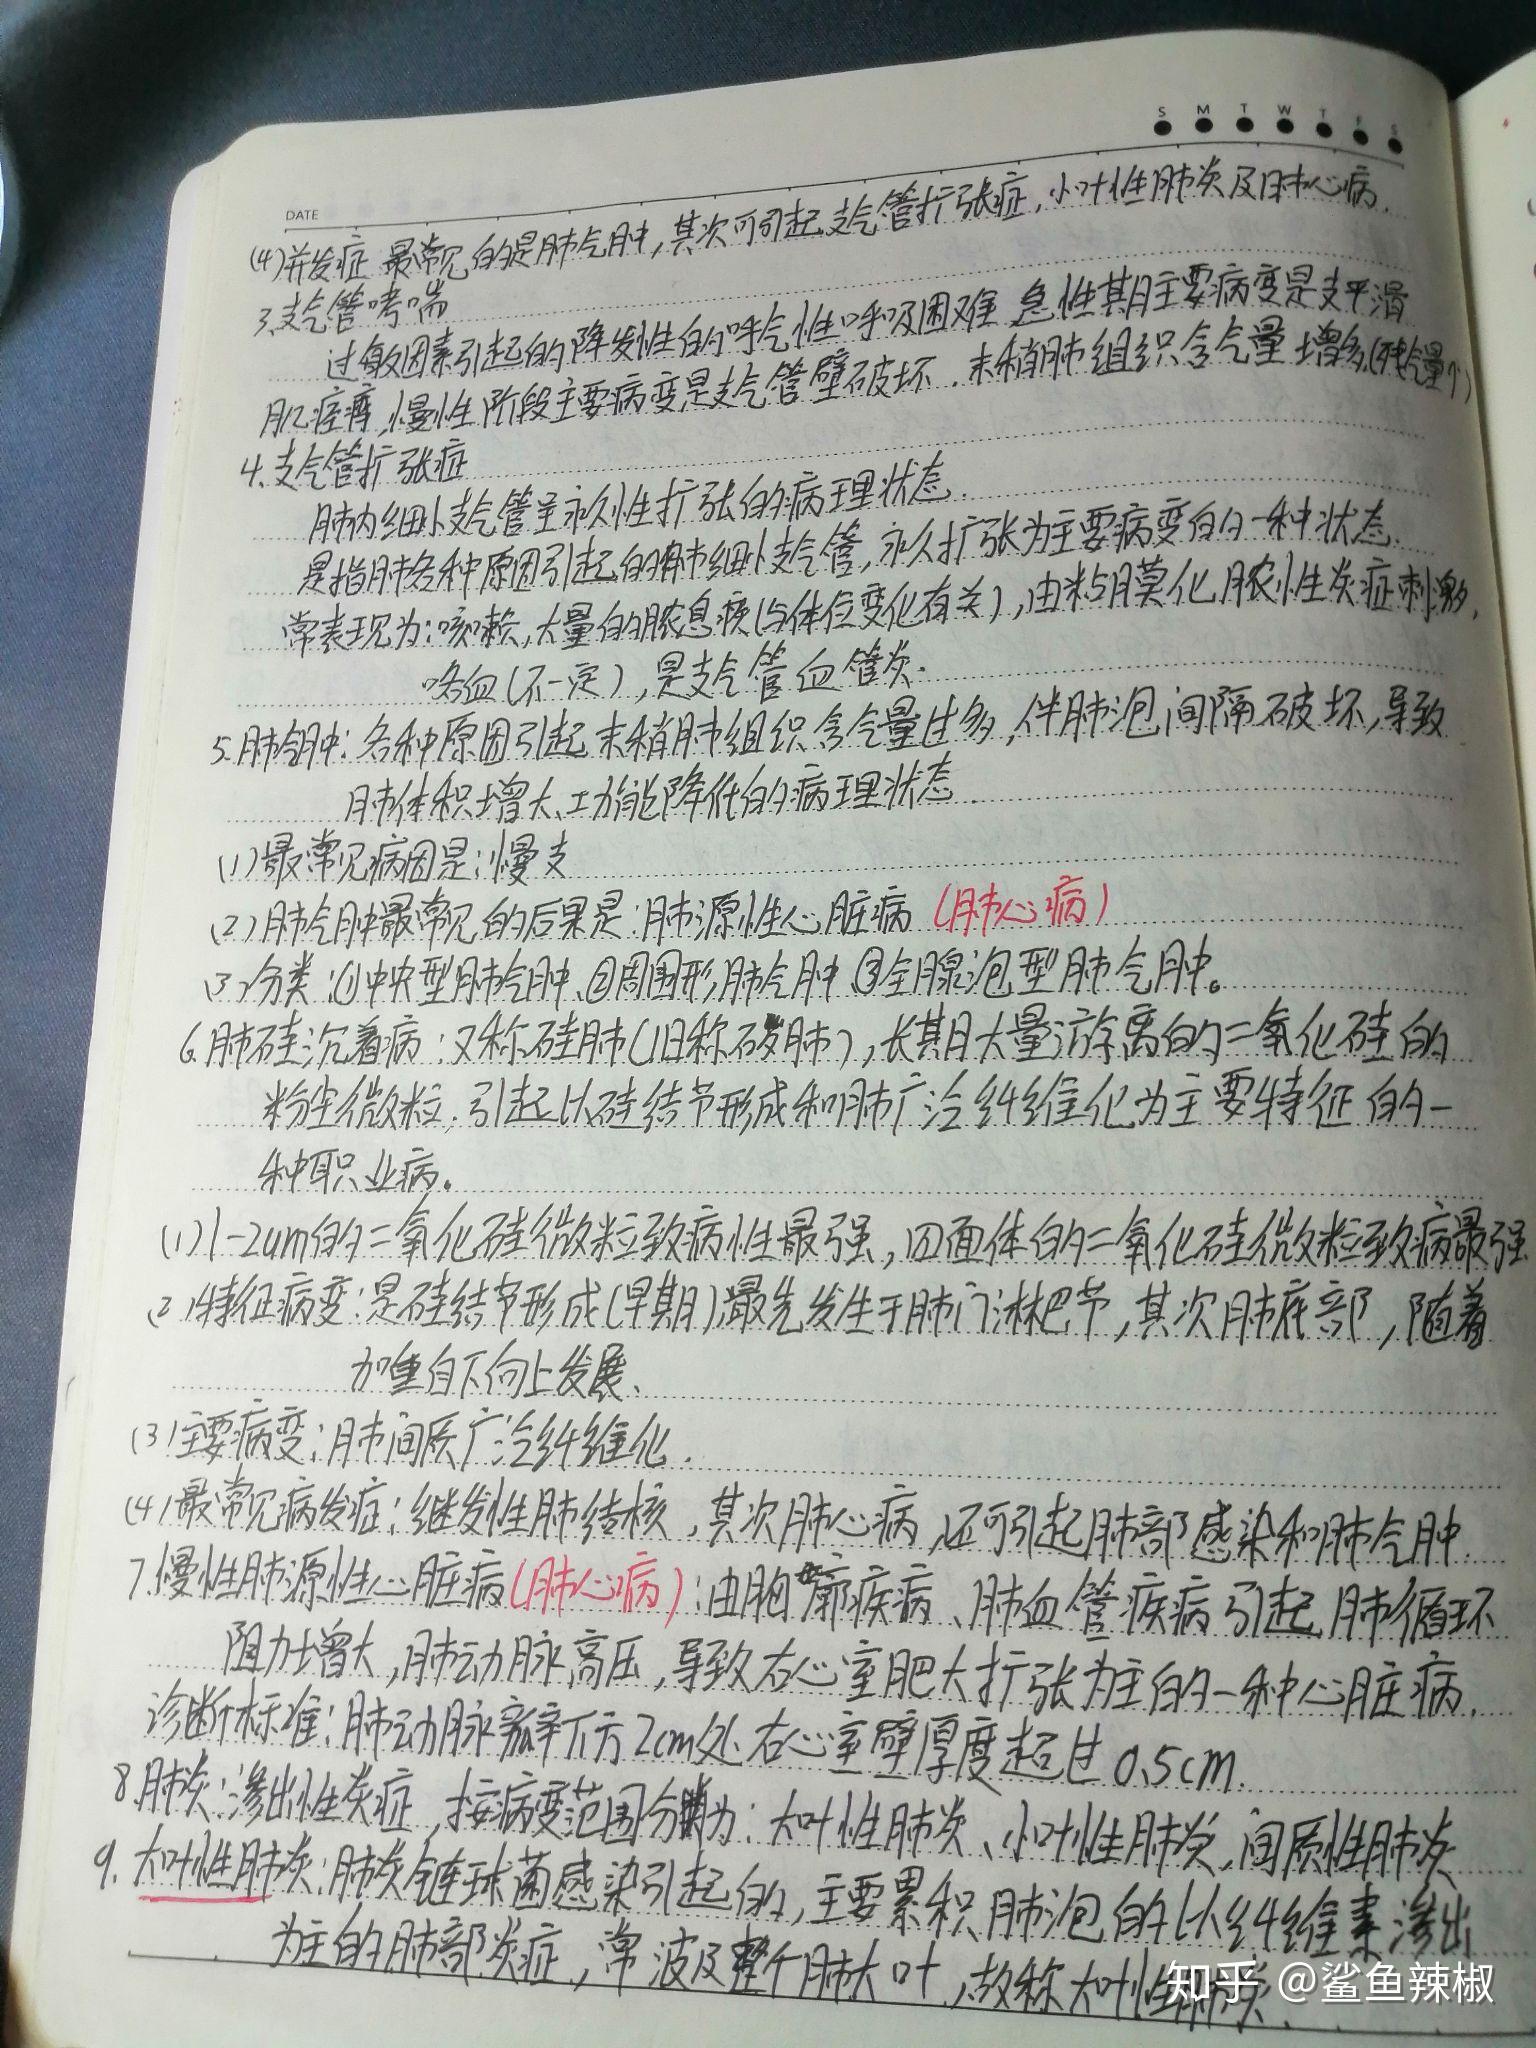 S M T W T F S
DATE
(4)并发症 最常见的是肺气肿,其次可引起支气管扩张症,小叶性肺炎及肺心病.
3.支气管哮喘
过敏因素引起的阵发性的呼气性呼吸困难 急性其月主要病变是支平滑
肌痉挛,慢性阶段主要病变是支气管壁破坏.末稍肺组织含气量增多(残气量↑)
4.支气管扩张症
肺内细小支气管呈永久性扩张的病理状态.
是指肺各种原因引起的肺细小支气管,永久扩张为主要病变的一种状态.
常表现为:咳嗽,大量的脓痰(与体位变化有关),由粘膜化脓性炎症刺激,
咯血(不一定),是支气管血管炎.
5.肺气肿:各种原因引起末稍肺组织含气量过多,伴肺泡间隔破坏,导致
肺体积增大、功能降低的病理状态.
(1)最常见病因是:慢支
(2)肺气肿最常见的后果是:肺源性心脏病(肺心病)
(3)分类:①中央型肺气肿、②周围形肺气肿、③全腺泡型肺气肿。
6.肺硅沉着病:又称硅肺(旧称矽肺),长期大量游离的二氧化硅的
粉尘微粒,引起以硅结节形成和肺广泛纤维化为主要特征的一
种职业病。
(1)1-2um的二氧化硅微粒致病性最强,四面体的二氧化硅微粒致病最强
(2)特征病变:是硅结节形成(早期)最先发生于肺门淋把节,其次肺底部,随着
加重自下向上发展、
(3)主要病变:肺间质广泛纤维化.
(4)最常见病发症:继发性肺结核,其次肺心病,还可引起肺部感染和肺气肿.
7.慢性肺源性心脏病(肺心病):由胸廓疾病、肺血管疾病引起肺循环
阻力增大,肺动脉高压,导致右心室肥大扩张为主的一种心脏病.
诊断标准:肺动脉瓣下方2cm处右心室壁厚度超过0.5cm.
8.肺炎:渗出性炎症,按病变范围分为:大叶性肺炎、小叶性肺炎,间质性肺炎
9.大叶性肺炎:肺炎链球菌感染引起的,主要累积肺泡的以纤维素渗出
为主的肺部炎症,常波及整个肺大叶,故称大叶性肺炎.
知乎 @鲨鱼辣椒